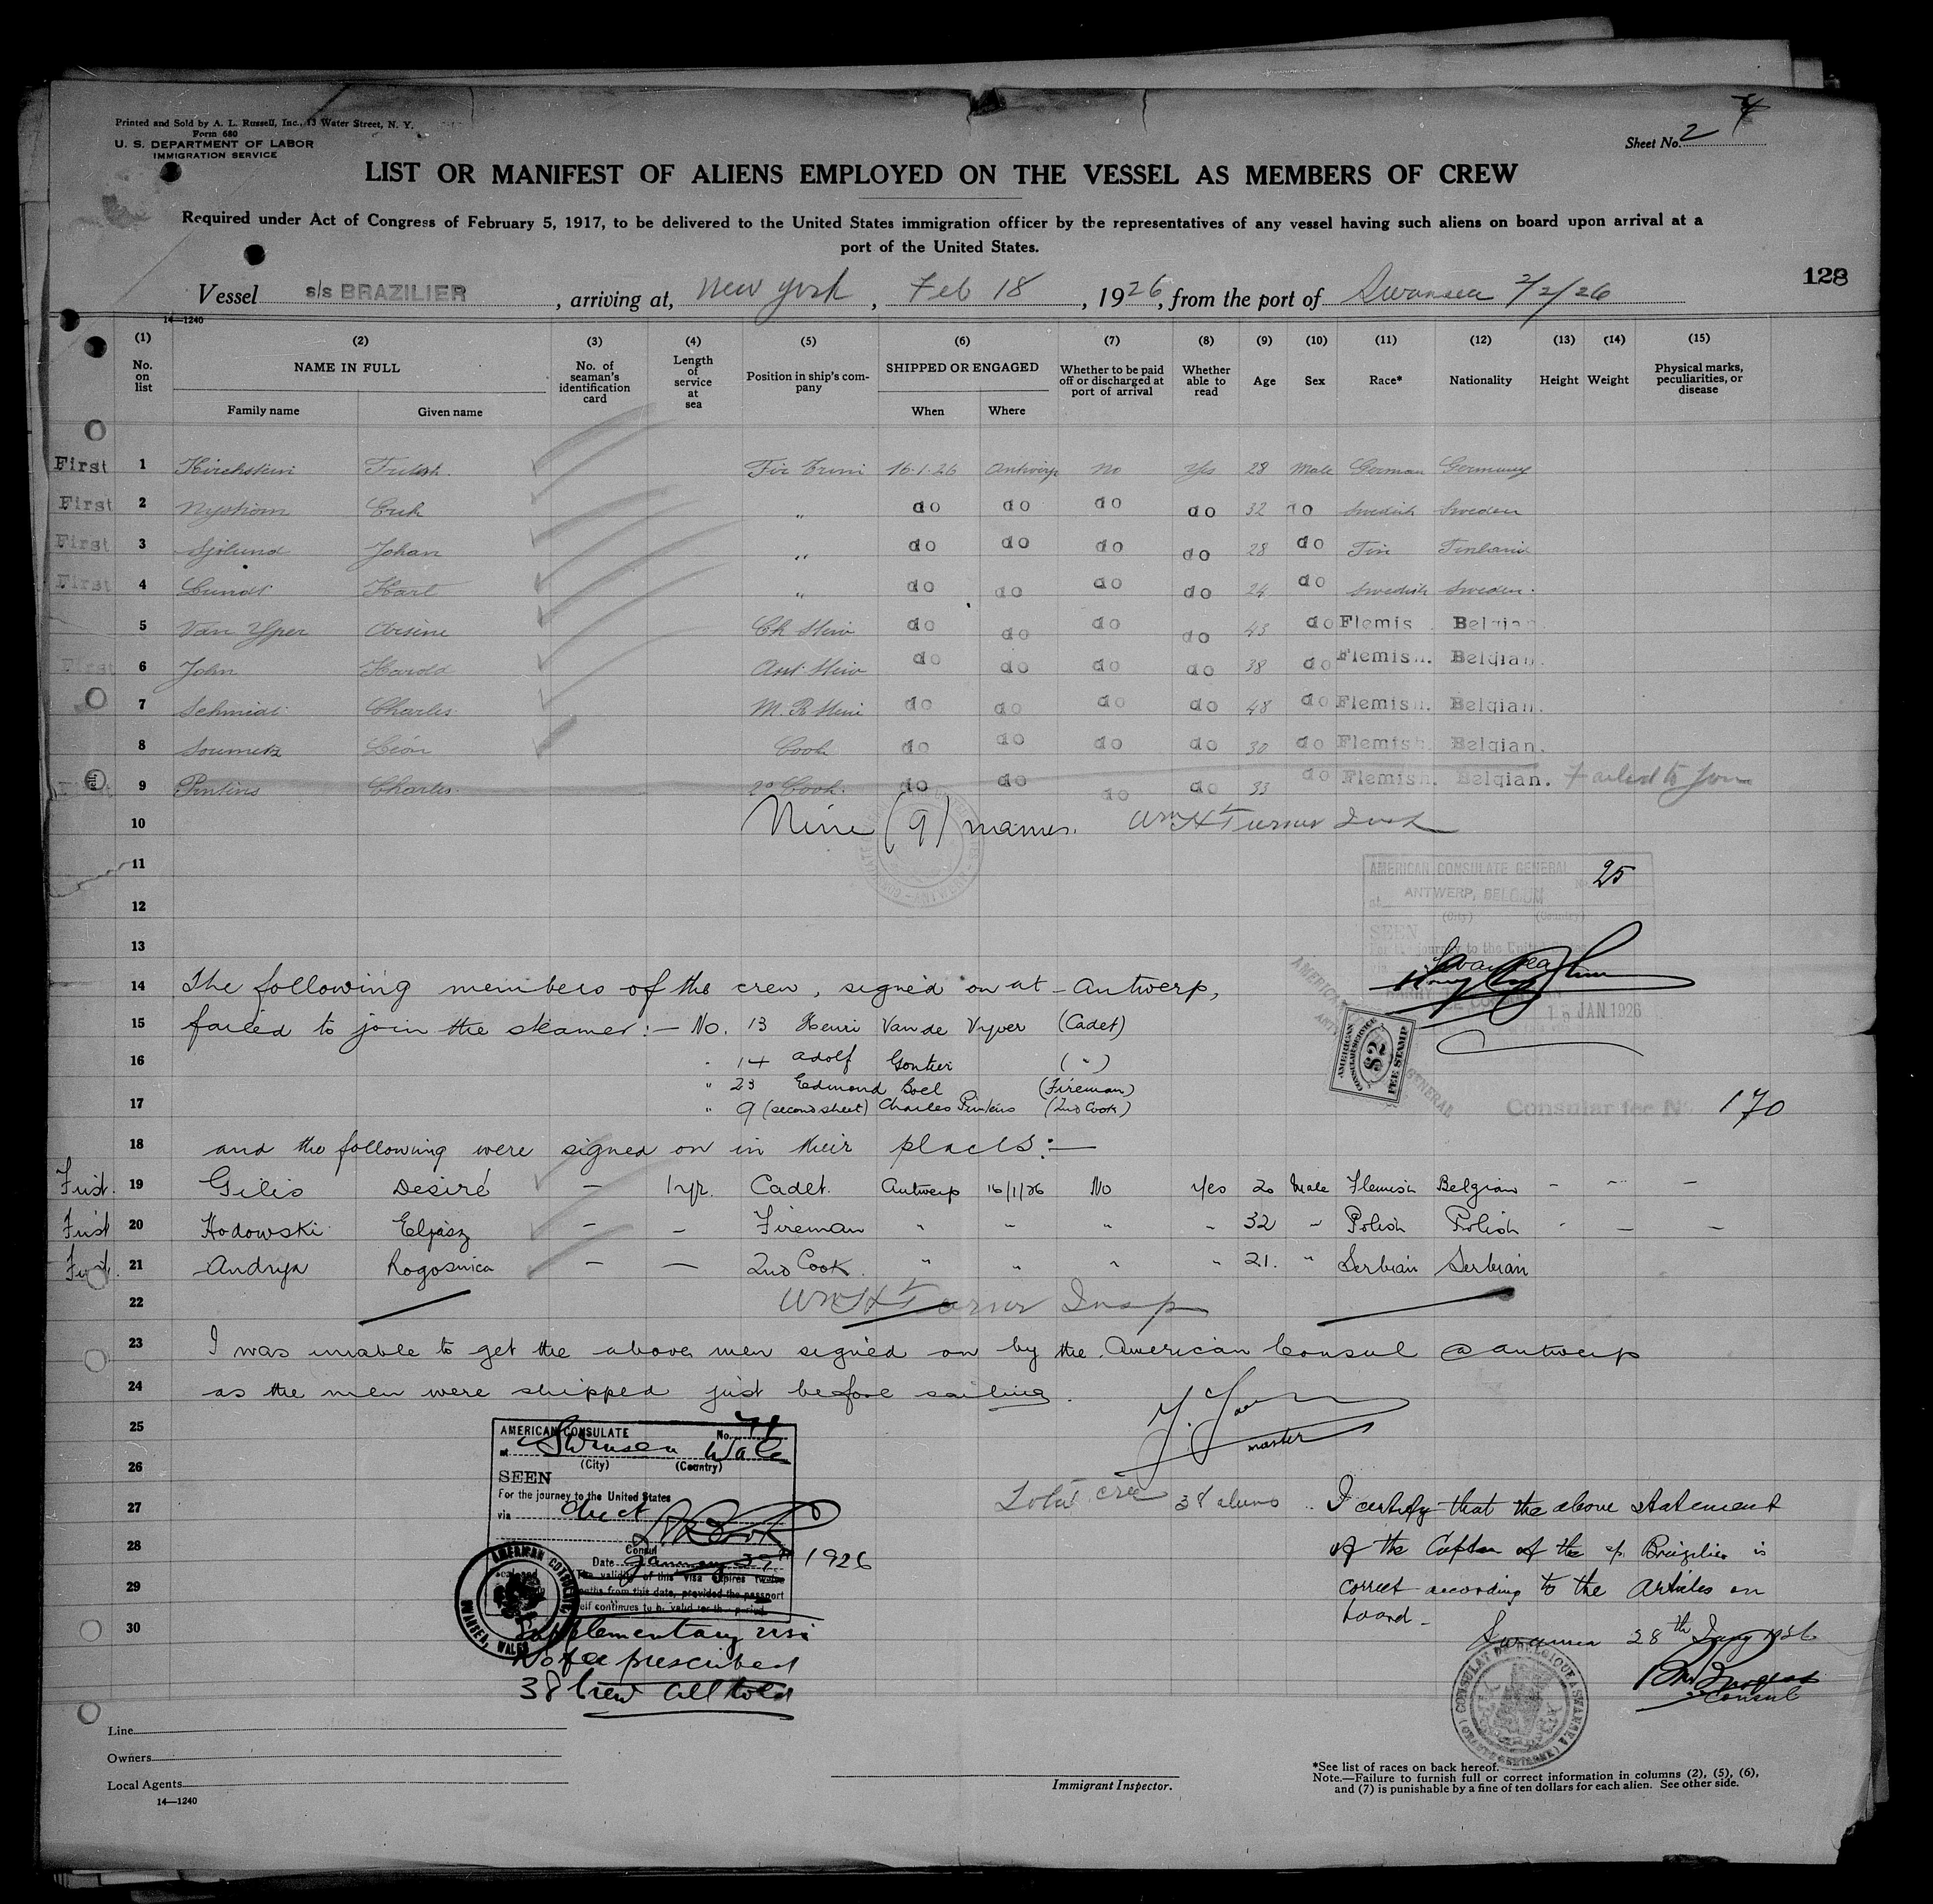 Printed and Sold by A. L. Russell, Inc., 13 Water Street, N. Y.
Form 680
U. S. DEPARTMENT OF LABOR
IMMIGRATION SERVICE
Sheet No. 2
LIST OR MANIFEST OF ALIENS EMPLOYED ON THE VESSEL AS MEMBERS OF CREW
Required under Act of Congress of February 5, 1917, to be delivered to the United States immigration officer by the representatives of any vessel having such aliens on board upon arrival at a
port of the United States.
128
Vessel s/s BRAZILIER, arriving at, New York, Feb 18, 1926, from the port of Swansea 2/2/26
14—1240
(1) (2) (3) (4) (5) (6) (7) (8) (9) (10) (11) (12) (13) (14) (15)
No. on list NAME IN FULL No. of seaman's identification card Length of service at sea Position in ship's company SHIPPED OR ENGAGED Whether to be paid off or discharged at port of arrival Whether able to read Age Sex Race* Nationality Height Weight Physical marks, peculiarities, or disease
Family name Given name When Where
First 1 16.1.26 Antwerp No Yes 28 Male German Germany
First 2 Nystrom Erik " do do do do 32 do Swedish Sweden
First 3 Sjölund Johan " do do do do 28 do Fin Finland
First 4 Lundt Karl " do do do do 24 do Swedish Sweden.
5 Van Yper Arsène do do do do 43 do Flemis Belgian
First 6 John Harold do do do do 38 do Flemish. Belgian.
7 Schmidt Charles do do do do 48 do Flemish. Belgian.
8 Soumetz Léon Cook do do do do 30 do Flemish. Belgian.
First 9 Pintins Charles 2d Cook do do do do 33 do Flemish. Belgian. Failed to join
10 Nine (9) names. Wm H Turner Insp
11 AMERICAN CONSULATE GENERAL
25
at ANTWERP, BELGIUM
12 (City) (Country)
SEEN
13 For the journey to the United States
Swansea
14 The following members of the crew, signed on at Antwerp,
15 failed to join the steamer:— No. 13 Henri Van de Vyver (Cadet)
19 JAN. 1926
16 " 14 Adolf Gontier ( " )
" 23 Edmond Boel (Fireman)
17 " 9 (second sheet) Charles Pintins (2nd Cook)
AMERICAN CONSULAR SERVICE $2 FEE STAMP
Consular fee No 170
18 and the following were signed on in their places:—
First. 19 Gilis Desiré — 1 yr. Cadet. Antwerp 16/1/26 No Yes 20 Male Flemish Belgian - - -
First 20 Hodowski Eljasz — — Fireman " " " " 32 " Polish Polish - — -
First. 21 Andrya Rogosnica — — 2nd Cook " " " " 21. " Serbian Serbian
22 Wm H Turner Insp
23 I was unable to get the above men signed on by the American Consul @ Antwerp
24 as the men were shipped just before sailing.
25 master
AMERICAN CONSULATE No. 71
at Swansea Wales
26 (City) (Country)
SEEN
27 For the journey to the United States
via direct
Total crew 38 aliens
I certify that the above statement
28 Consul
Date January 1926
of the Captain of the s/s Brazilier is
The validity of this visa expires twelve
29 months from this date, provided the passport
itself continues to be valid for that period.
correct according to the Articles on
30 board.
AMERICAN CONSULATE SWANSEA, WALES
Supplementary visa
No fee prescribed
38 Crew all told
Swansea 28th Jany 1926
Consul
CONSULAT DE BELGIQUE A SWANSEA (GRANDE BRETAGNE)
Line
Owners
Local Agents
14—1240
Immigrant Inspector.
*See list of races on back hereof.
Note.—Failure to furnish full or correct information in columns (2), (5), (6),
and (7) is punishable by a fine of ten dollars for each alien. See other side.